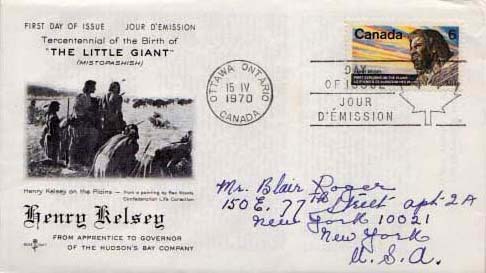 FIRST DAY OF ISSUE JOUR D'ÉMISSION
Tercentennial of the Birth of
"THE LITTLE GIANT"
(MISTOPASHISH)
Henry Kelsey on the Plains — from a painting by Rex Woods
Confederation Life Collection
Henry Kelsey
FROM APPRENTICE TO GOVERNOR
OF THE HUDSON'S BAY COMPANY
OTTAWA ONTARIO
15 IV
1970
CANADA
Canada 6
DAY
OF ISSUE
JOUR
D'ÉMISSION
Mr. Blair Roger
150 E. 77th Street apt 2A
New York 10021
New York
U.S.A.